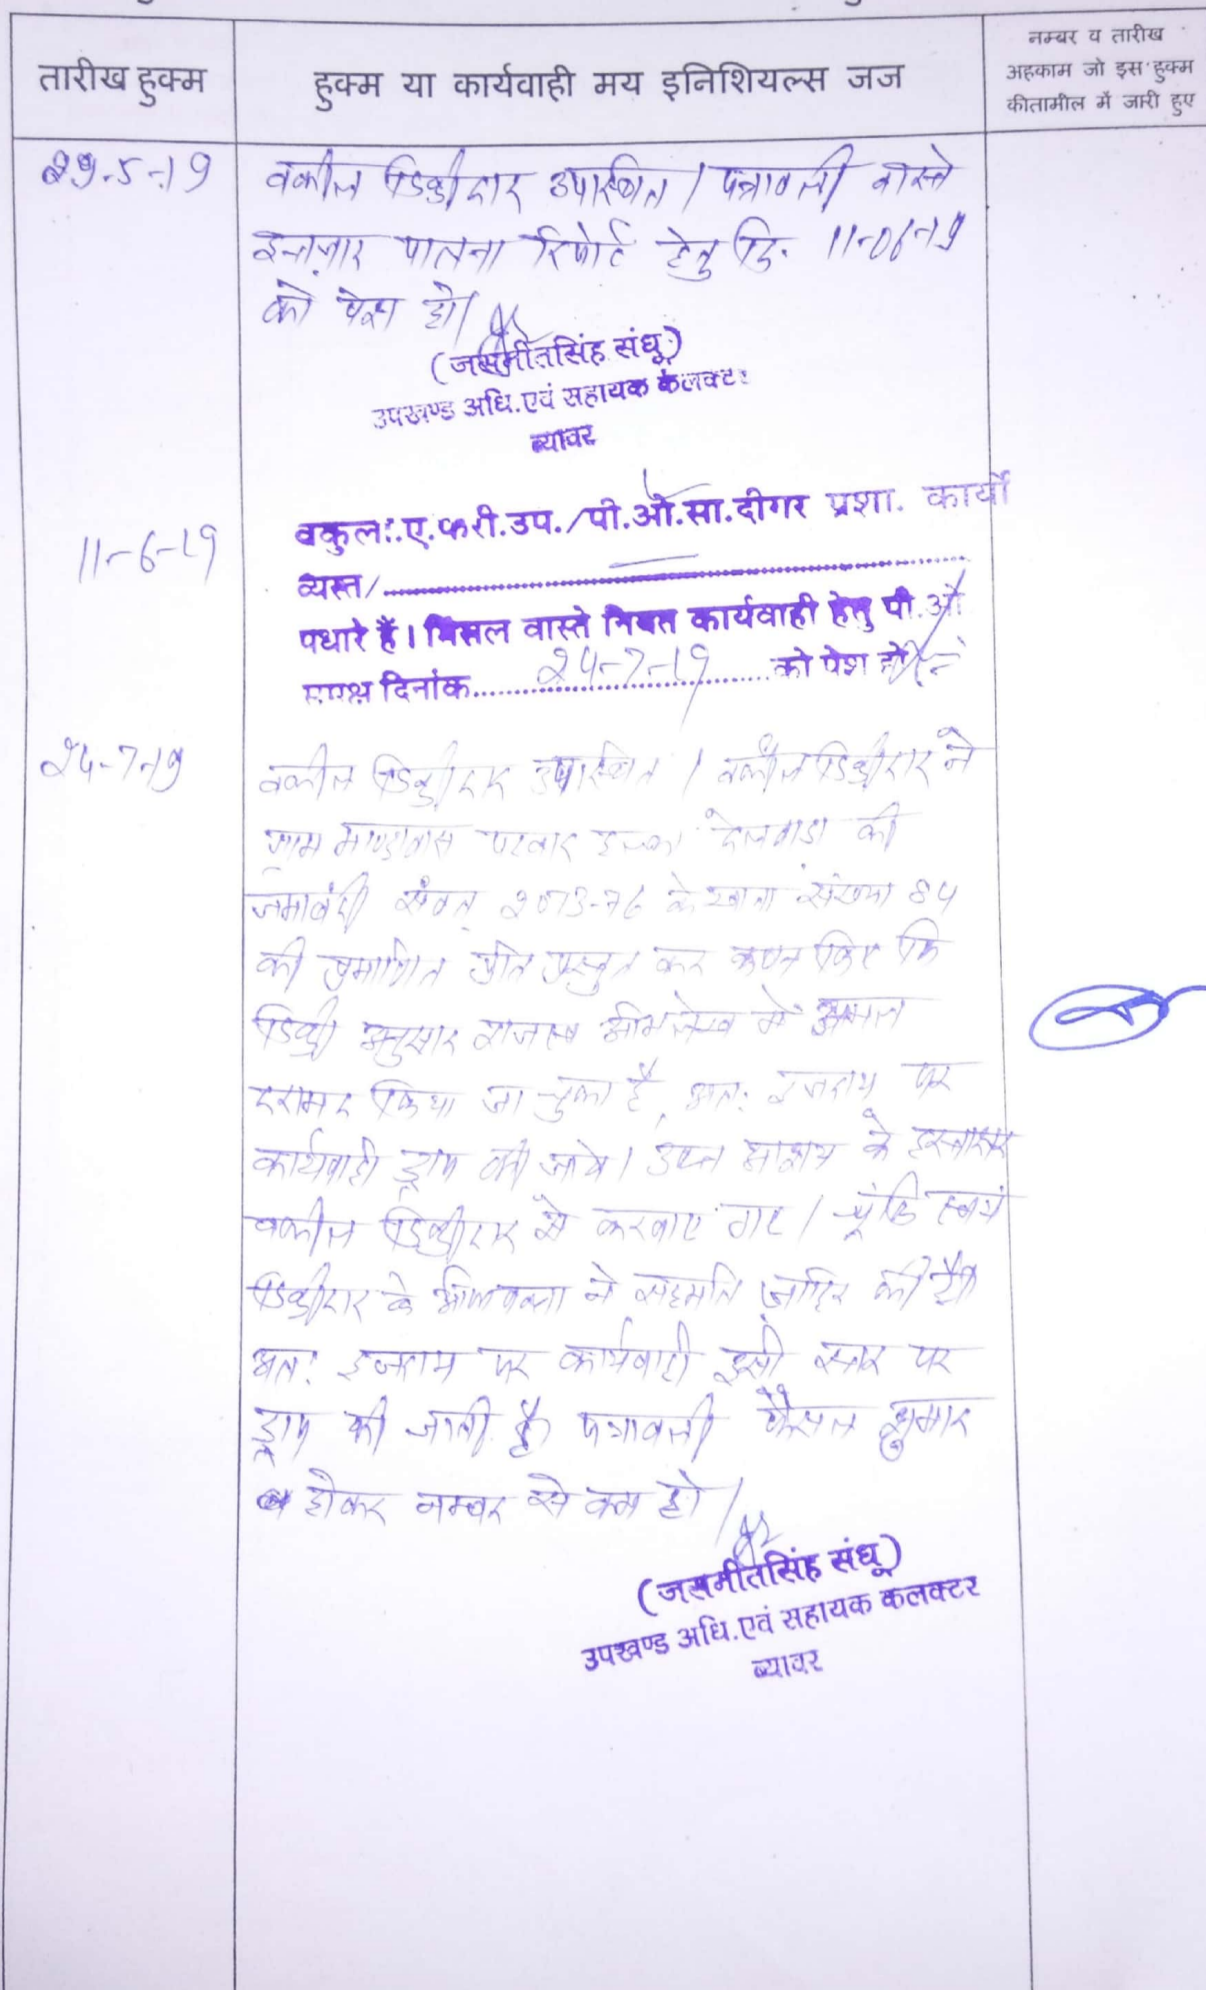 तारीख हुक्म
हुक्म या कार्यवाही मय इनिशियल्स जज
नम्बर व तारीख
अहकाम जो इस हुक्म
की तामील में जारी हुए
29-5-19
वकील डिक्रीदार उपस्थित। पत्रावली वास्ते
इन्तजार पालना रिपोर्ट हेतु दि. 11-06-19
को पेश हो।
(जसमीतसिंह संधू)
उपखण्ड अधि. एवं सहायक कलक्टर
ब्यावर
11-6-19
वकुल: ए.फरी.उप./पी.ओ.सा.दीगर प्रशा. कार्यो
व्यस्त/
पधारे हैं। मिसल वास्ते नियत कार्यवाही हेतु पी.ओ
दिनांक 24-7-19 को पेश हो
24-7-19
वकील डिक्रीदार उपस्थित। वकील डिक्रीदार ने
ग्राम पटवार हल्का देलवाडा की
जमाबंदी संवत् 2073-76 के खाता संख्या 84
की प्रमाणित प्रति प्रस्तुत कर कथन किए कि
डिक्री अनुसार राजस्व अभिलेख में अमल
दरामद किया जा चुका है, अत: इजराय पर
कार्यवाही ड्राप की जावे। उक्त आशय के हस्ताक्षर
वकील डिक्रीदार से करवाए गए। चूंकि स्वयं
डिक्रीदार के अभिवक्ता ने सहमति जाहिर की है।
अत: इजराय पर कार्यवाही इसी स्तर पर
ड्राप की जाती है। पत्रावली फैसल शुमार
होकर नम्बर से कम हो।
(जसमीतसिंह संधू)
उपखण्ड अधि. एवं सहायक कलक्टर
ब्यावर